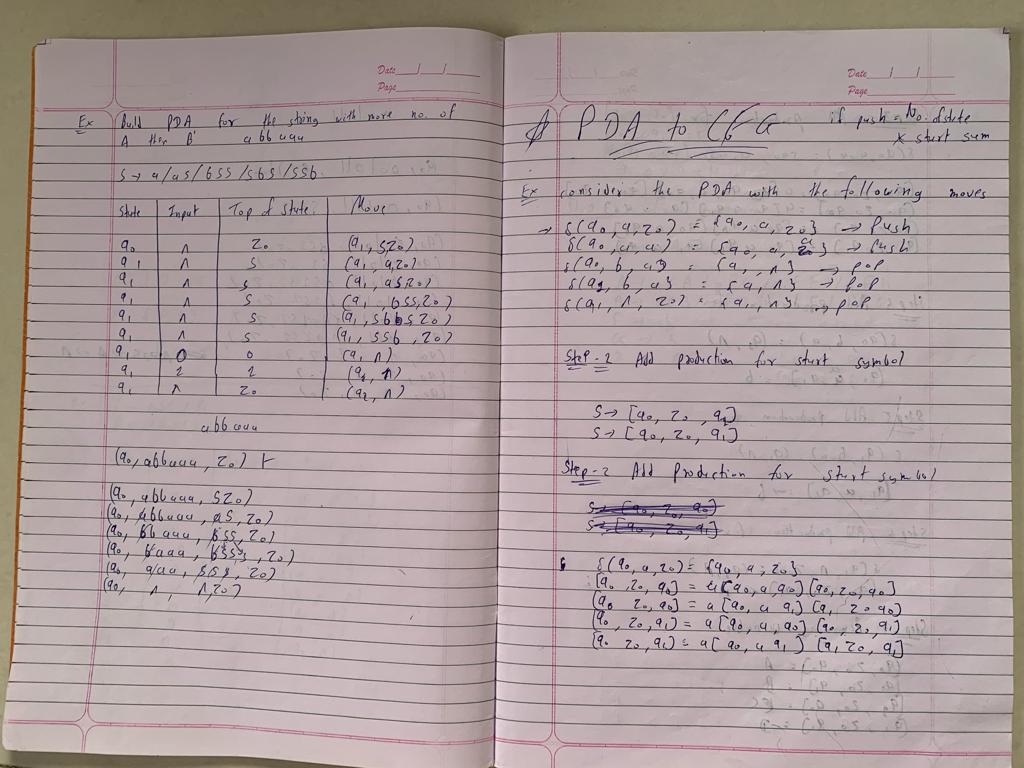 Date / /
Page
Ex Build PDA for the string with more no. of
A then B abbaaa
S → a/as/bss/sbs/ssb
State Input Top of State Move
q0 ʌ z0 (q1, sz0)
q1 ʌ s (q1, a,z0)
q1 ʌ s (q1, asz0)
q1 ʌ s (q1, bss,z0)
q1 ʌ s (q1, sbbsz0)
q1 ʌ s (q1, ssb, z0)
q1 0 0 (q1 ʌ)
q1 2 2 (q2, ʌ)
q1 ʌ z0 (q2, ʌ)
abbaaa
(q0, abbaaa, z0) ⊢
(q0, abbaaa, sz0)
(q0, abbaaa, as, z0)
(q0, bbaaa, bss, z0)
(q0, baaa, bsss, z0)
(q0, aaa, sss, z0)
(q0, ʌ, ʌ, z0)
Date / /
Page
PDA to CFG if push = No. of state
x start sum
Ex consider the PDA with the following moves
→ δ(q0, a, z0) = {q0, a, z0} → Push
δ(q0, a, a) = {q0, a, a} → Push
δ(q0, b, a) = {q1, ʌ} → pop
δ(q1, b, a) = {q1, ʌ} → pop
δ(q1, ʌ, z0) = {q1, ʌ} → pop
Step - 2 Add production for start symbol
S → [q0, z0, q0]
S → [q0, z0, q1]
Step - 2 Add Production for start symbol
S → [q0, z0, q0]
S → [q0, z0, q1]
δ(q0, a, z0) = {q0, a, z0}
[q0, z0, q0] = a[q0, a, q0] [q0, z0, q0]
[q0 z0, q0] = a [q0, a q1] [q1 z0 q0]
[q0, z0, q1] = a [q0, a, q0] [q0, z0, q1]
[q0 z0, q1] = a[q0, a q1] [q1 z0, q1]